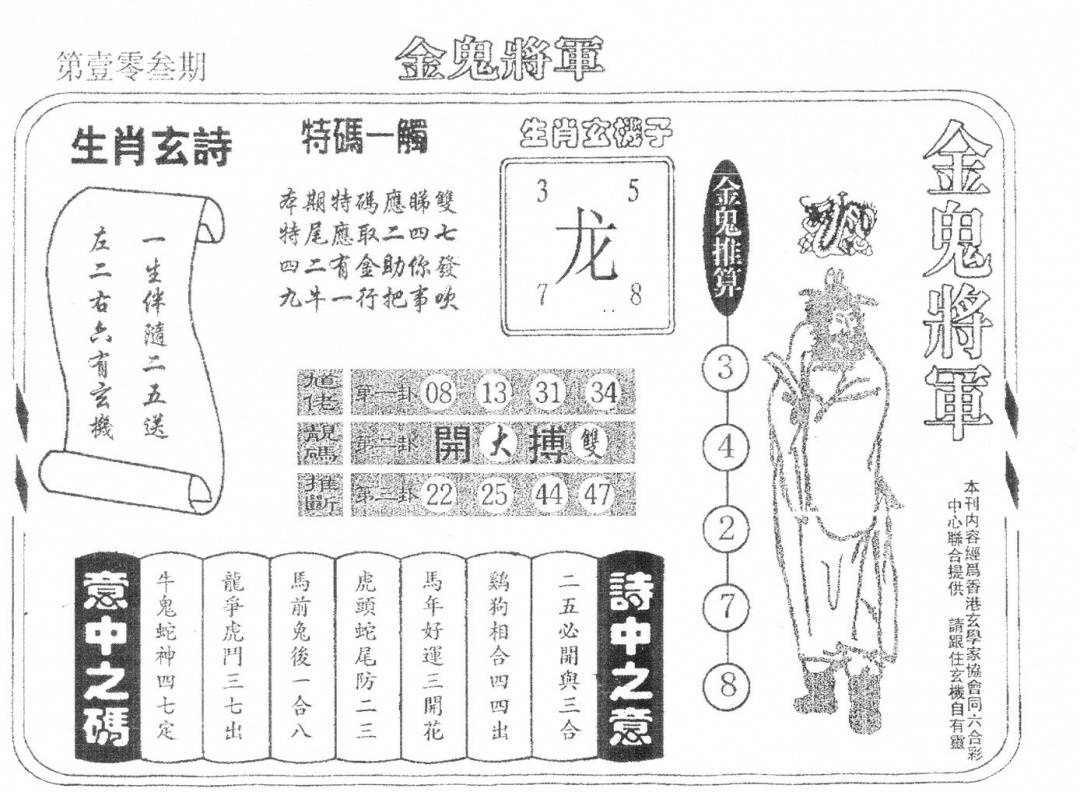 第壹零叁期
金鬼將軍
生肖玄詩
一生伴隨二五送
左二右六有玄機
特碼一觸
本期特碼應睇雙
特尾應取二四七
四二有金助你發
九牛一行把事吹
生肖玄機子
3 5
龙
7 8
靚碼
推斷
第一卦 08 13 31 34
第二卦 開 大 搏 雙
第三卦 22 25 44 47
金鬼推算
3
4
2
7
8
金鬼將軍
本刊內容經爲香港玄學家協會同六合彩
中心聯合提供 請跟住玄機自有靈
詩中之意
二五必開與三合
鷄狗相合四四出
馬年好運三開花
虎頭蛇尾防二三
馬前兔後一合八
龍爭虎鬥三七出
牛鬼蛇神四七定
意中之碼